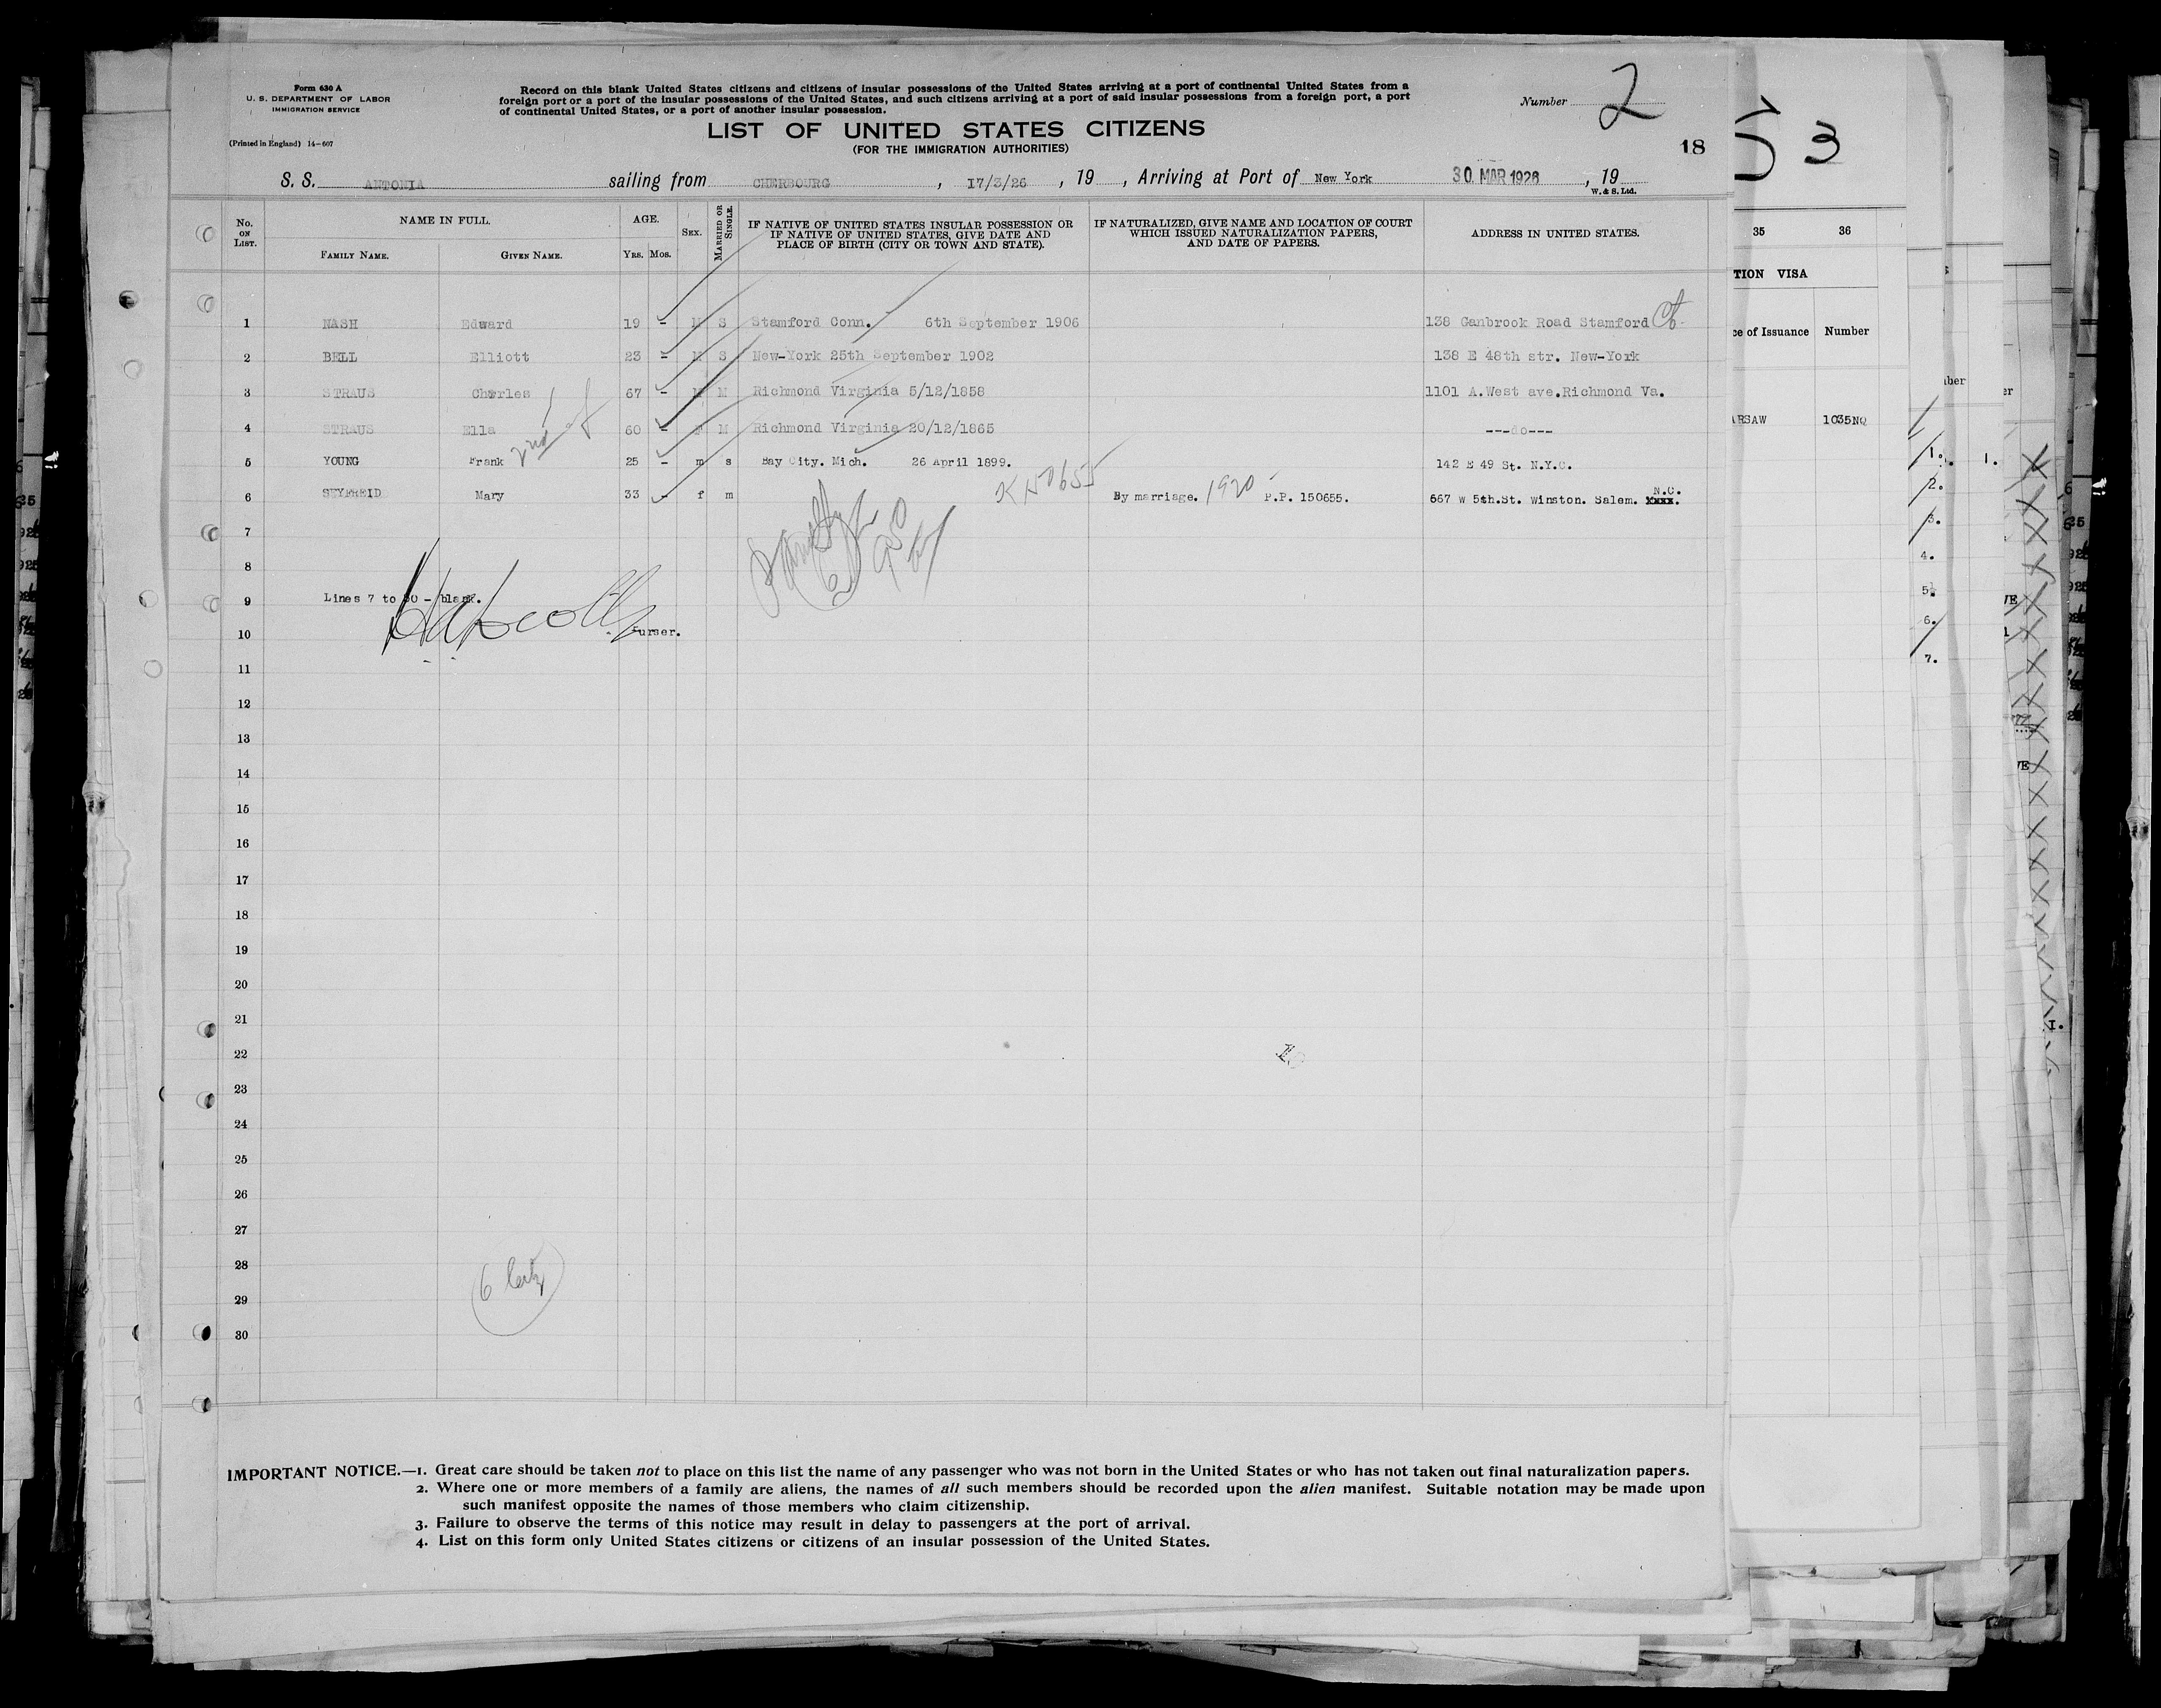 Form 630 A
U. S. DEPARTMENT OF LABOR
IMMIGRATION SERVICE
(Printed in England) 14-607
Record on this blank United States citizens and citizens of insular possessions of the United States arriving at a port of continental United States from a
foreign port or a port of the insular possessions of the United States, and such citizens arriving at a port of said insular possessions from a foreign port, a port
of continental United States, or a port of another insular possession.
Number 2
LIST OF UNITED STATES CITIZENS
(FOR THE IMMIGRATION AUTHORITIES)
18
S. S. ANTONIA sailing from CHERBOURG, 17/3/26, 19, Arriving at Port of New York 30 MAR 1926, 19
W. & S. Ltd.
No. ON LIST. NAME IN FULL. AGE. SEX. MARRIED OR SINGLE. IF NATIVE OF UNITED STATES INSULAR POSSESSION OR IF NATIVE OF UNITED STATES, GIVE DATE AND PLACE OF BIRTH (CITY OR TOWN AND STATE). IF NATURALIZED, GIVE NAME AND LOCATION OF COURT WHICH ISSUED NATURALIZATION PAPERS, AND DATE OF PAPERS. ADDRESS IN UNITED STATES.
FAMILY NAME. GIVEN NAME. YRS. MOS.
1 NASH Edward 19 - M S Stamford Conn. 6th September 1906 138 Ganbrook Road Stamford Ct.
2 BELL Elliott 23 - M S New-York 25th September 1902 138 E 48th str. New-York
3 STRAUS Charles 67 - M M Richmond Virginia 5/12/1858 1101 A.West ave.Richmond Va.
4 STRAUS Ella 60 - F M Richmond Virginia 20/12/1865 ---do---
5 YOUNG Frank 25 - m s Bay City. Mich. 26 April 1899. 142 E 49 St. N.Y.C.
6 SEYFREID Mary 33 - f m By marriage. 1920 P.P. 150655. 667 W 5th.St. Winston. Salem. N.C.
7
8
9 Lines 7 to 30 - blank.
10 Purser.
11
12
13
14
15
16
17
18
19
20
21
22
23
24
25
26
27
28
29
30
IMPORTANT NOTICE.—1. Great care should be taken not to place on this list the name of any passenger who was not born in the United States or who has not taken out final naturalization papers.
2. Where one or more members of a family are aliens, the names of all such members should be recorded upon the alien manifest. Suitable notation may be made upon
such manifest opposite the names of those members who claim citizenship.
3. Failure to observe the terms of this notice may result in delay to passengers at the port of arrival.
4. List on this form only United States citizens or citizens of an insular possession of the United States.
3
35 36
TION VISA
ce of Issuance Number
RSAW 1035NQ
1.
2.
3.
4.
5.
6.
7.